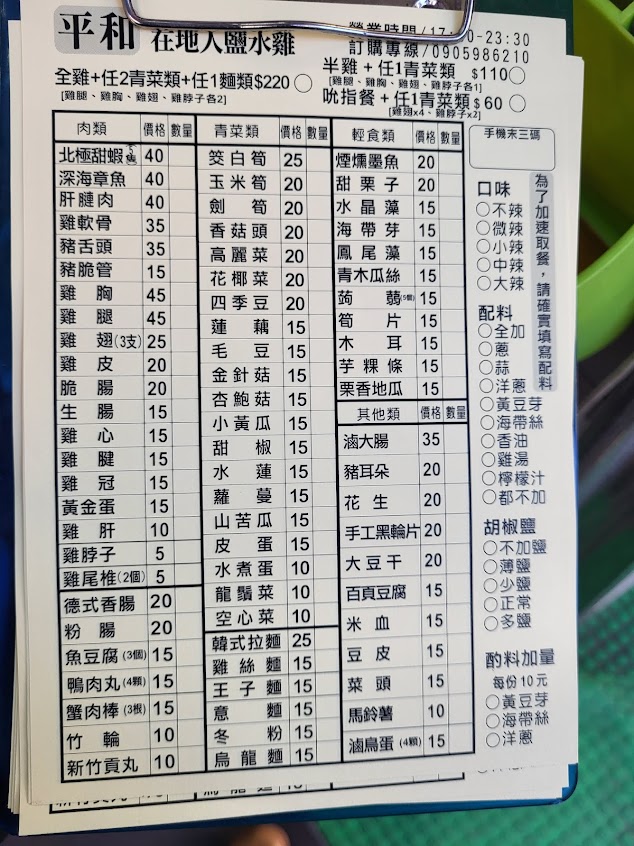 平和 在地人鹽水雞
營業時間/17: 0-23:30
訂購專線/0905986210
全雞+任2青菜類+任1麵類$220○
[雞腿、雞胸、雞翅、雞脖子各2]
半雞+任1青菜類 $110○
[雞腿、雞胸、雞翅、雞脖子各1]
吮指餐+任1青菜類$60○
[雞翅x4、雞脖子x2]
肉類 價格 數量
北極甜蝦 40
深海章魚 40
肝腱肉 40
雞軟骨 35
豬舌頭 35
豬脆管 15
雞胸 45
雞腿 45
雞翅(3支) 25
雞皮 20
脆腸 20
生腸 15
雞心 15
雞腱 15
雞冠 15
黃金蛋 15
雞肝 10
雞脖子 5
雞尾椎(2個) 5
德式香腸 20
粉腸 20
魚豆腐(3個) 15
鴨肉丸(4顆) 15
蟹肉棒(3根) 15
竹輪 10
新竹貢丸 10
青菜類 價格 數量
筊白筍 25
玉米筍 20
劍筍 20
香菇頭 20
高麗菜 20
花椰菜 20
四季豆 20
蓮藕 15
毛豆 15
金針菇 15
杏鮑菇 15
小黃瓜 15
甜椒 15
水蓮 15
蘿蔓 15
山苦瓜 15
皮蛋 15
水煮蛋 10
龍鬚菜 10
空心菜 10
韓式拉麵 25
雞絲麵 15
王子麵 15
意麵 15
冬粉 15
烏龍麵 15
輕食類 價格 數量
煙燻墨魚 20
甜栗子 20
水晶藻 15
海帶芽 15
鳳尾藻 15
青木瓜絲 15
蒟蒻(5個) 15
筍片 15
木耳 15
芋粿條 15
栗香地瓜 15
其他類 價格 數量
滷大腸 35
豬耳朵 20
花生 20
手工黑輪片 20
大豆干 20
百頁豆腐 15
米血 15
豆皮 15
菜頭 15
馬鈴薯 10
滷鳥蛋(4顆) 15
手機末三碼
為了加速取餐，請確實填寫配料
口味
○不辣
○微辣
○小辣
○中辣
○大辣
配料
○全加
○蔥
○蒜
○洋蔥
○黃豆芽
○海帶絲
○香油
○雞湯
○檸檬汁
○都不加
胡椒鹽
○不加鹽
○薄鹽
○少鹽
○正常
○多鹽
酌料加量
每份10元
○黃豆芽
○海帶絲
○洋蔥